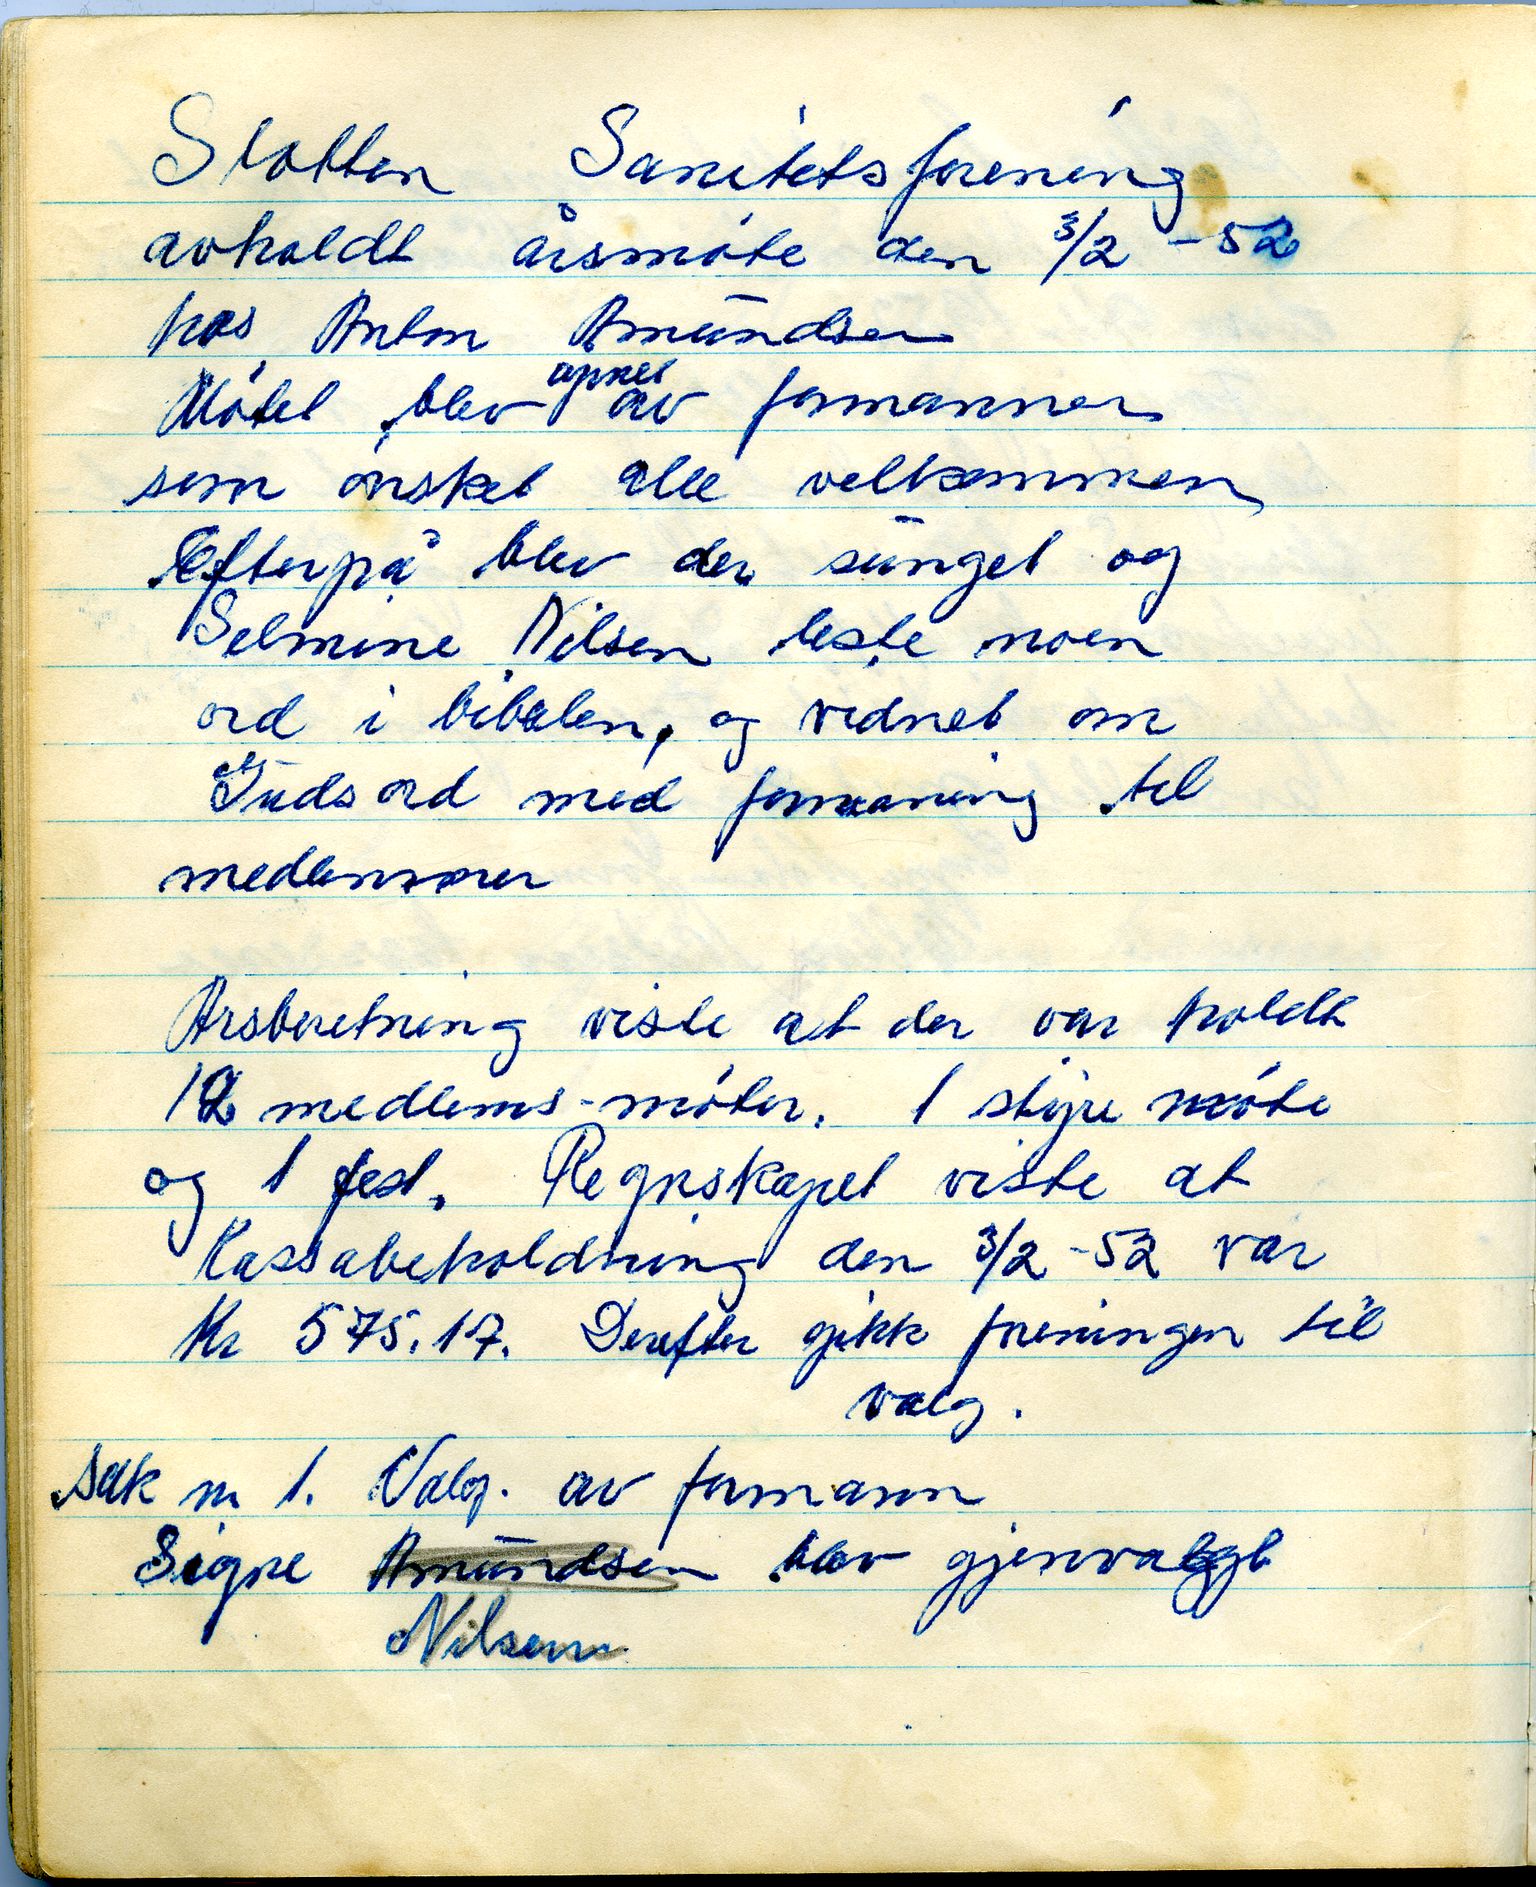 Slotten Sanitetsforening
avholdt årsmóte den 3/2 - 52
hos Anton Amundsen
Mótet blev apnet av formannen
som ónsket alle velkommen
Efterpå blev der sunget og
Selmine Nilsen leste noen
ord i bibelen, og vidnet om
Guds ord med formaning til
medlemmer
Arsberetning viste at der var holdt
12 medlems-móter. 1 styre móte
og 1 fest. Regnskapet viste at
Kassabeholdning den 3/2 - 52 var
Kr 575.17. Derefter gikk foreningen til
valg.
Sak nr 1. Valg. av formann
Signe Amundsen blev gjenvalgt
Nilsen